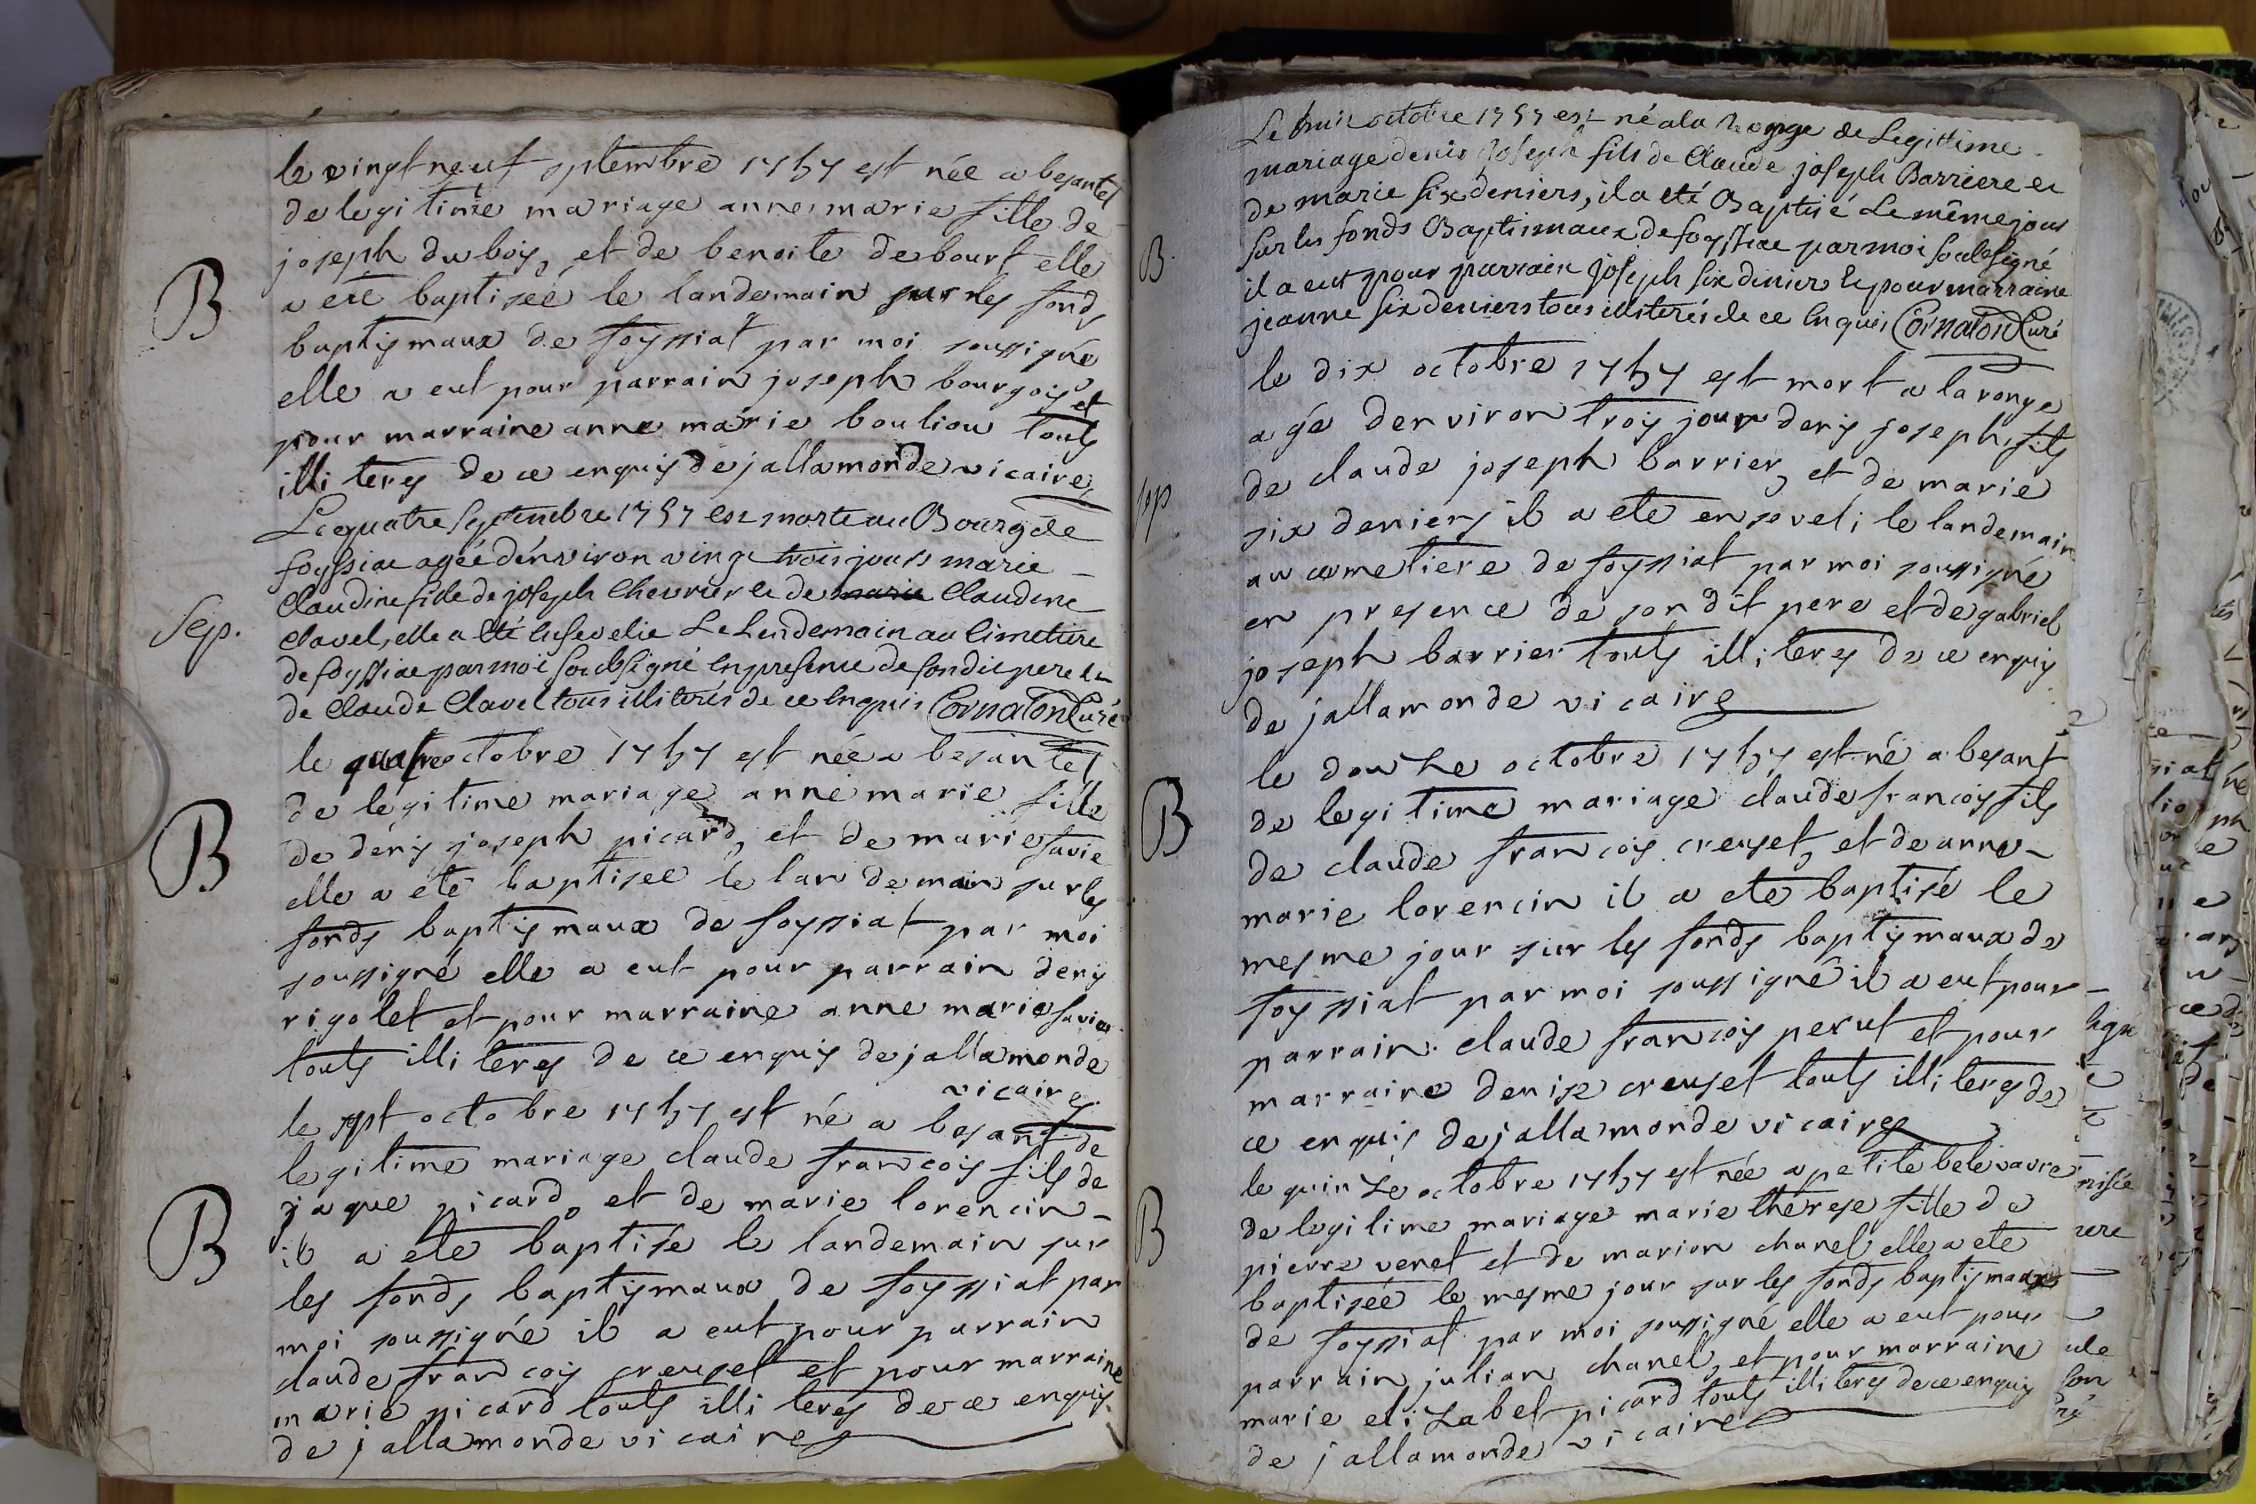 le vingt neuf septembre 1757 est née a besantet
de legitime mariage anne marie fille de
joseph du bois, et de benoite debourt elle
B
a eté baptisée le landemain sur les fonds
baptismaux de foyssiat par moi soussigné
elle a eut pour parrain joseph bourgois et
pour marraine anne marie bouliou touts
illiterés de ce enquis dejallamonde vicaire
Le quatre septembre 1757 est morte au Bourg de
foyssiat agée dénviron vingt trois jours marie
Claudine fille de joseph Chevrier et de marie Claudine
Sep.
Clavel, elle a été ensevelie Le Lendemain au Cimetiere
de foyssiat par moi soubsigné en presence de son dit pere et
de Claude Clavel tous illiterés de ce enquis Cornaton Curé
le quatre octobre 1757 est née a besantet
de légitime mariage anne marie fille
de dénis joseph picard, et de marie favie
B
elle a eté baptisee le landemain sur les
fonds baptismaux de foyssiat par moi
soussigné elle a eut pour parrain denis
rigolet et pour marraine anne marie favier
touts illiterés de ce enquis dejallamonde
vicaire
le sept octobre 1757 est né a besant de
legitime mariage claude francois fils de
jaque picard, et de marie lorencin
B
il a eté baptisé le landemain sur
les fonds baptismaux de foyssiat par
moi soussigné il a eut pour parrain
claude francois creuset et pour marraine
marie picard touts illiterés de ce enquis
de jallamonde vicaire
Le huit octobre 1757 est né a la Ronge de Legittime
mariage denis Joseph fils de Claude joseph Barriere et
de marie Six deniers, il a eté Baptisé Le même jour
B
sur les fonds Baptismaux de foyssiat par moi soubsigné
il a eut pour parrain Joseph Six deniers et pour marraine
jeanne Six deniers tous illiterés de ce enquis Cornaton Curé
le dix octobre 1757 est mort a la ronge
agé denviron trois jours denis joseph, fils
de claude joseph barrier, et de marie
sep
six deniers il a eté enseveli le landemain
au cemetiere de foyssiat par moi soussigné
en presence de son dit pere et de gabriel
joseph barrier touts illiterés de ce enquis
de jallamonde vicaire
le douze octobre 1757 est né a besant
B
de legitime mariage claude francois fils
de claude francois creuset, et de anne
marie lorencin il a eté baptisé le
mesme jour sur les fonds baptismaux de
foyssiat par moi soussigné il a eut pour
parrain claude francois perut et pour
marraine denise creuset touts illiterés de
ce enquis dejallamonde vicaire
le quinze octobre 1757 est née a petite belevavre
B
de legitime mariage marie therese fille de
pierre venet et de marion chanel elle a eté
baptisée le mesme jour sur les fonds baptismaux
de foyssiat par moi soussigné elle a eut pour
parrain julian chanel, et pour marraine
marie elizabet picard touts illiterés de ce enquis
de jallamonde vicaire